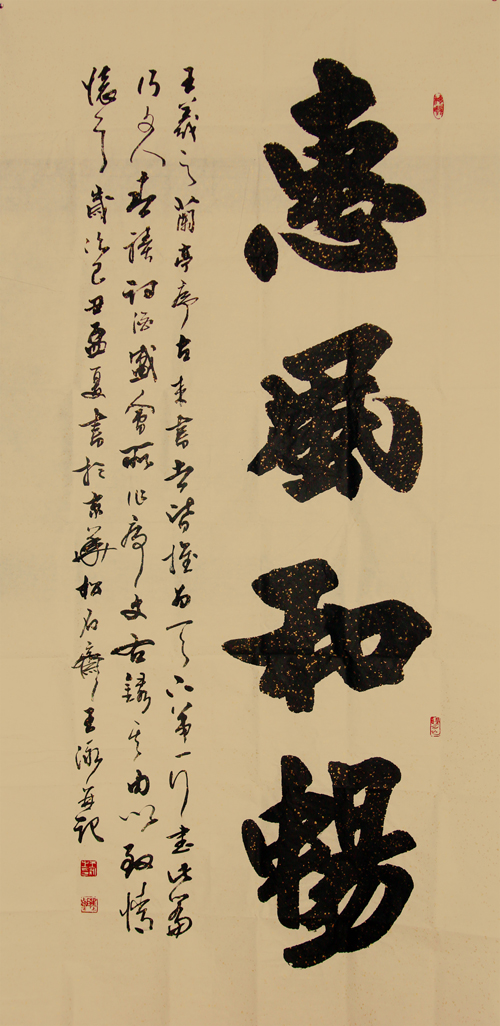 惠風和暢
王羲之蘭亭序古來書者皆推為天下第一行書此篇
乃文人春禊詩酒盛會所作序文錄其由以敘情
懷耳歲次己丑孟夏書於京華松石齋王并記